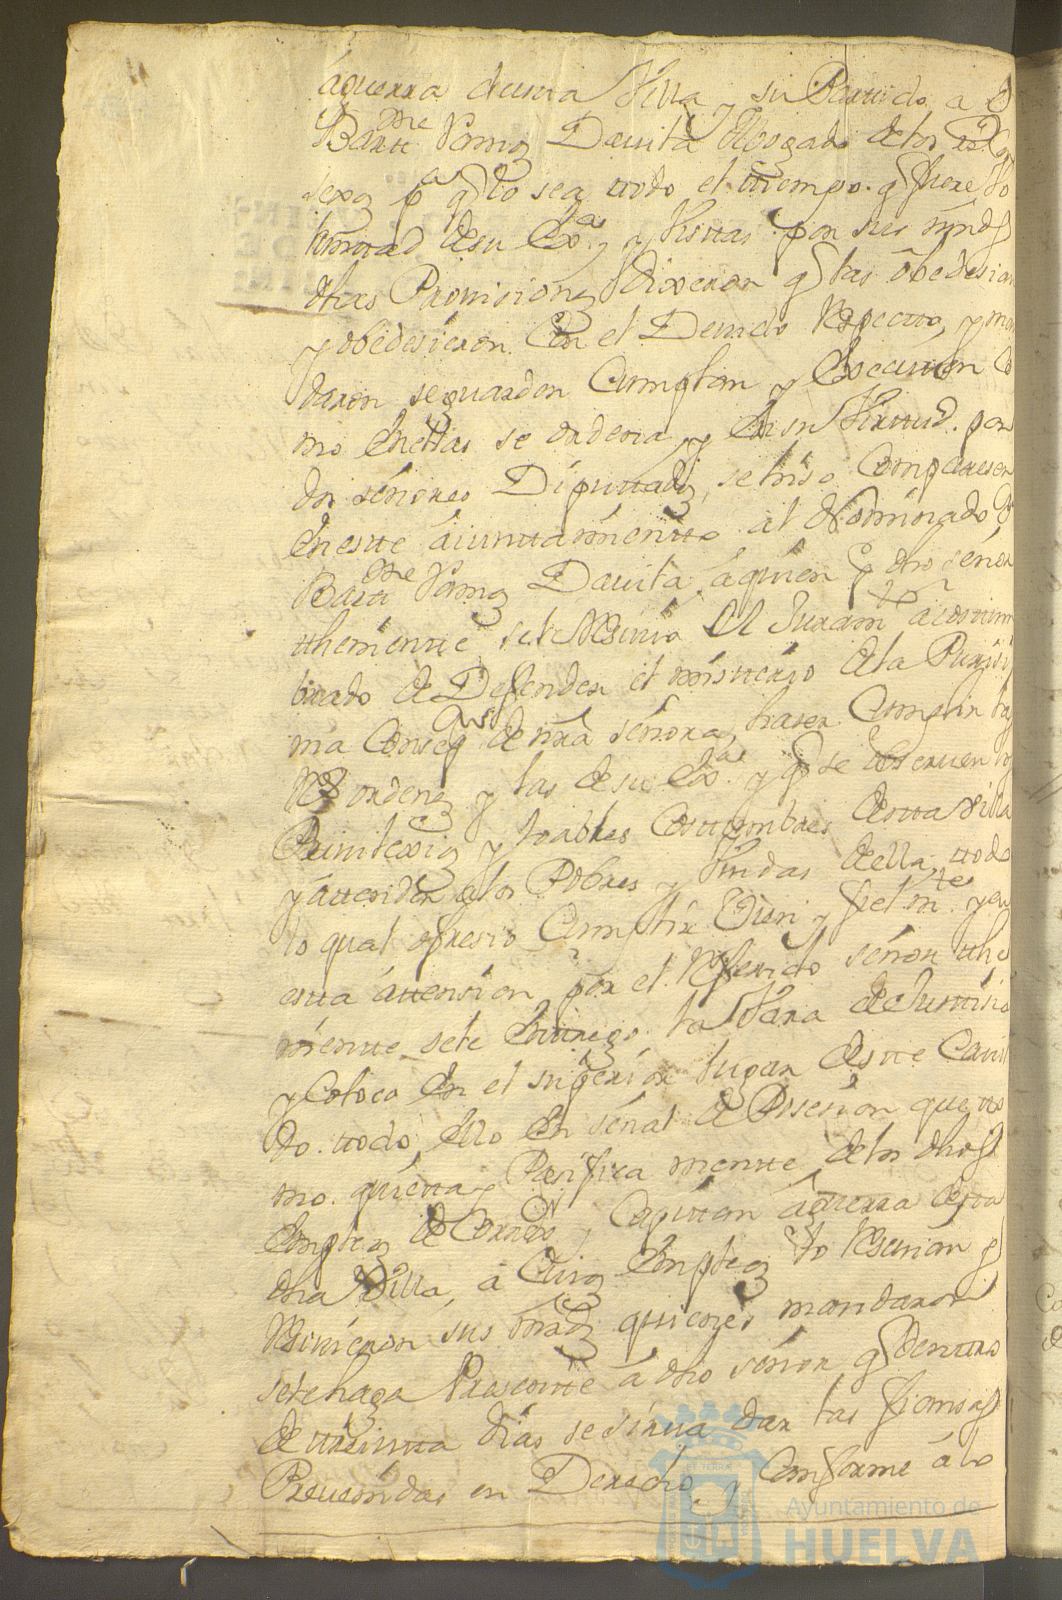 á guerra de esta Villa y su Partido a Dn
Bartme Dauila Abogado de los rs. Con
sexos pa. q lo sea todo el tiempo q fuere Vo
luntad de su Exa. y Vistas por sus mrds
dhas Prouisiones dixeron q las óbedesian
y obedesieron Con el Deuido Respecto, y man
daron se guarden Cumplan y Executen Co
mo En ellas se ordena y En su Virtud por
dos señores Diputtados, se hiso Compareser
En este áiunttamientto al Nominado Dn
Bartme Dauila, áquien p dho señor
thenientte se le Resiuió El Juramto acostum
brado de Defender el mistterio de la Purisi
ma Consepon de nra señora, haser Cumplir las
Rs ordenes y las de su Exa. y q se obseruen los
Preuilexios y loables Costtumbres de estta villa
y attender a los Pobres y Viudas de ella, ttodo
lo qual ofresio Cumplir Vien y fielmte. y en
estta áttension por el Referido señor the
nientte se le Enttregó la Vara de Justtisia
y Colocó En el superior lugar de este Cauil
do ttodo Ello En señal de Posesion que tto
mó quietta y Pasificamentte de los dhos
Empleos de Corrdor y Capitan águerra de estta
dha Villa, á Cuios Empleos lo Resiuian y
Resiuieron sus mrds quienes mandaron
se le haga Presentte á dho señor q denttro
de ttreintta dias se sirua dar las fianzas
Preuenidas en Derecho y Conforme á lo
Ayuntamiento de
HUELVA